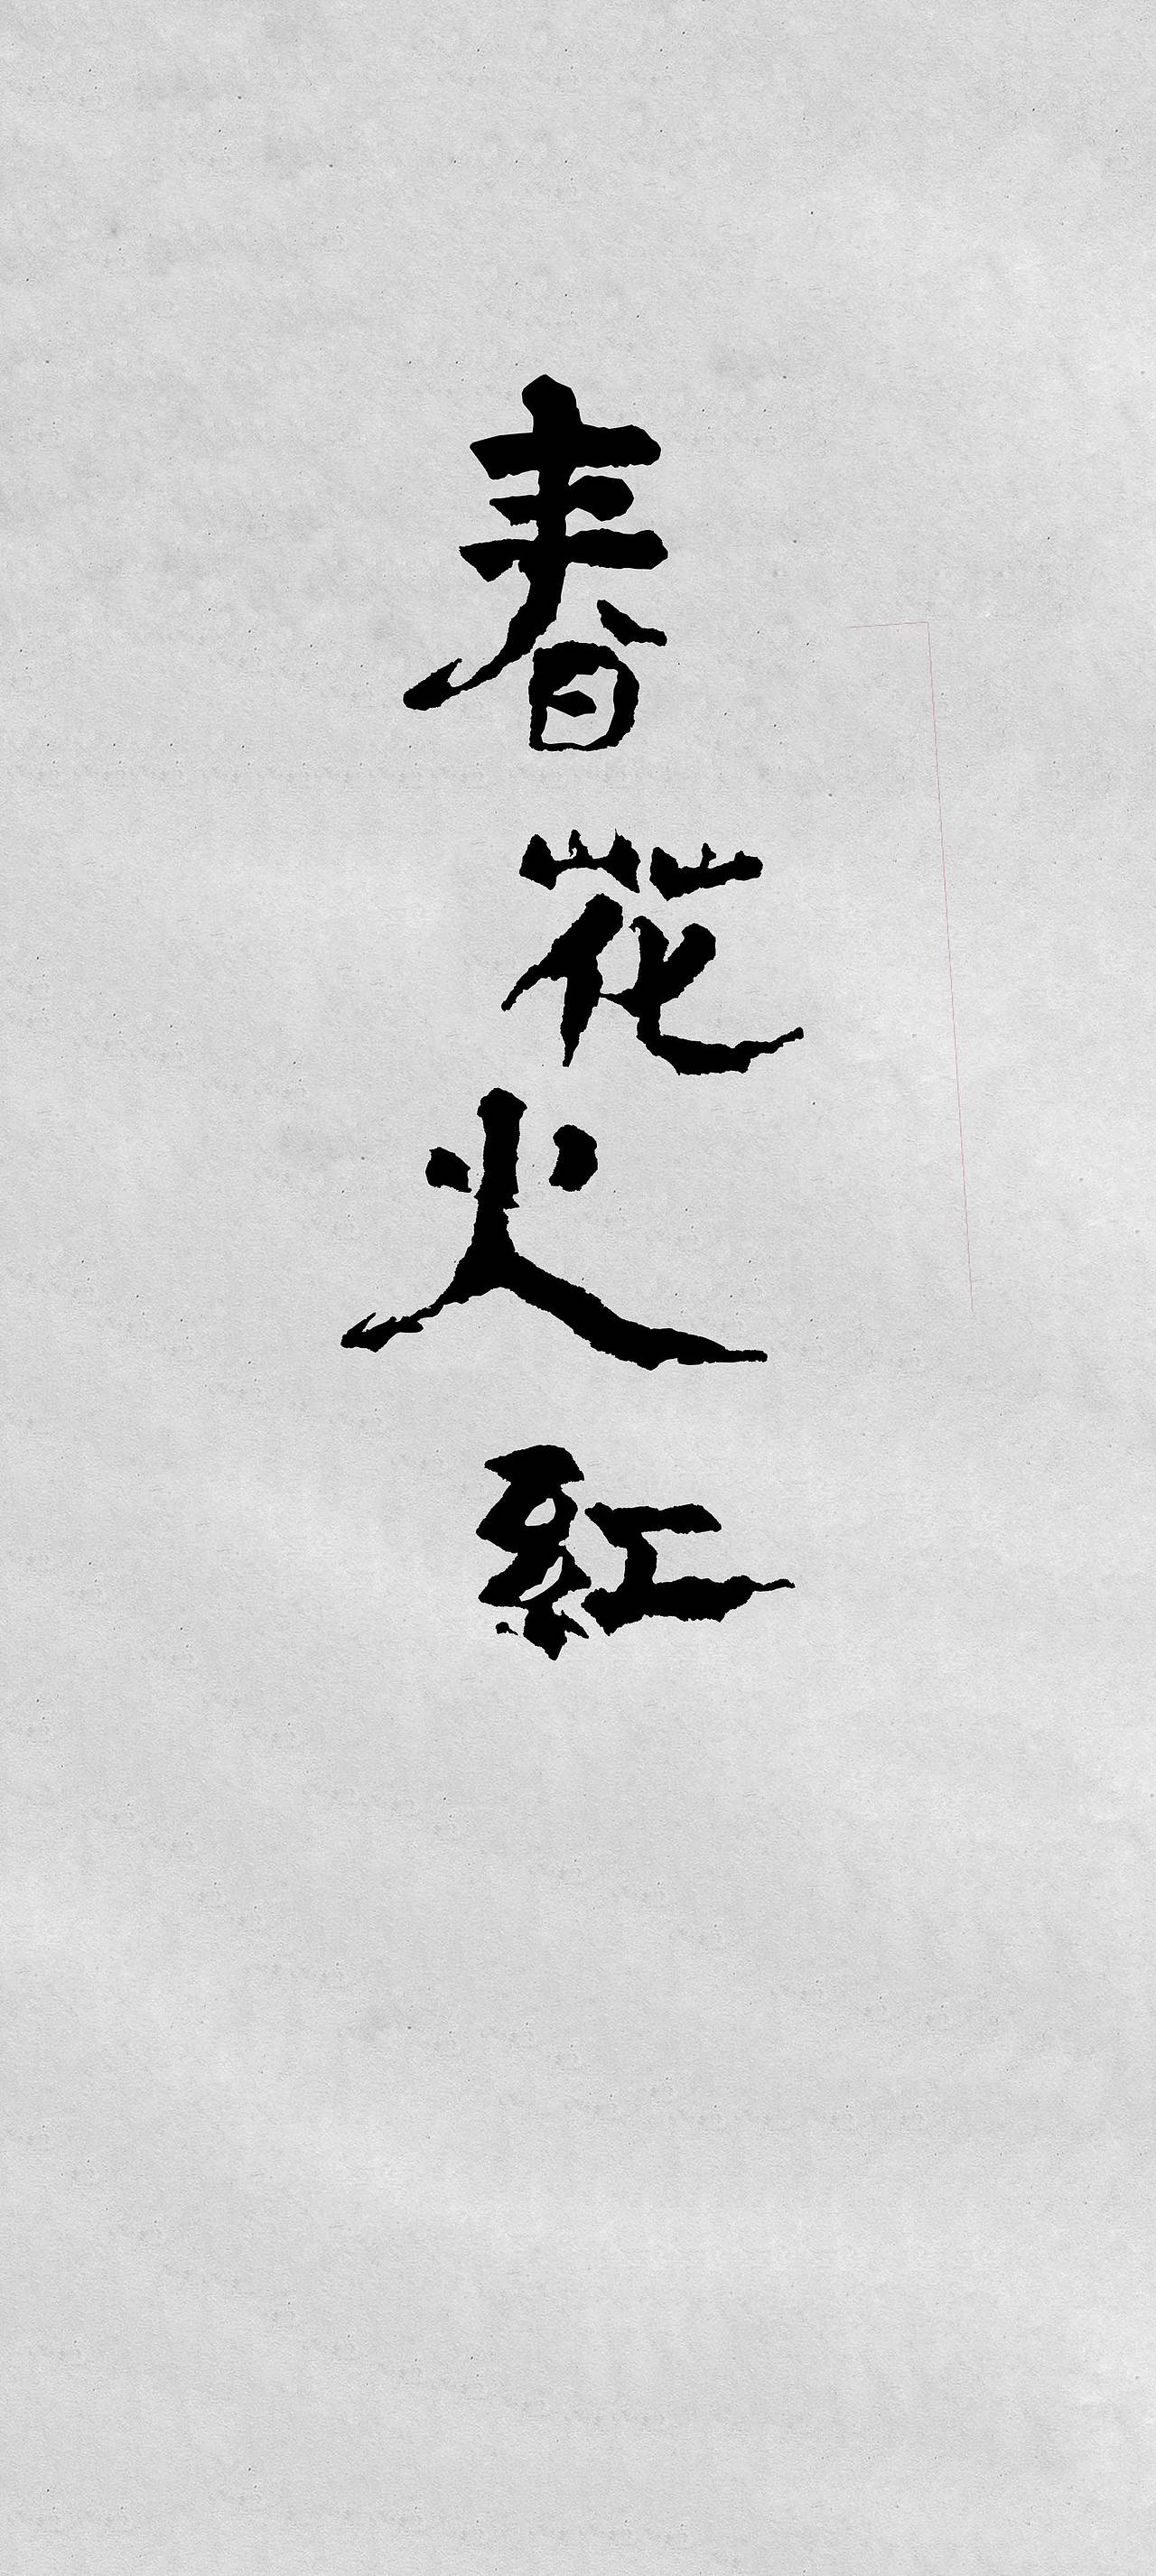 春花火紅